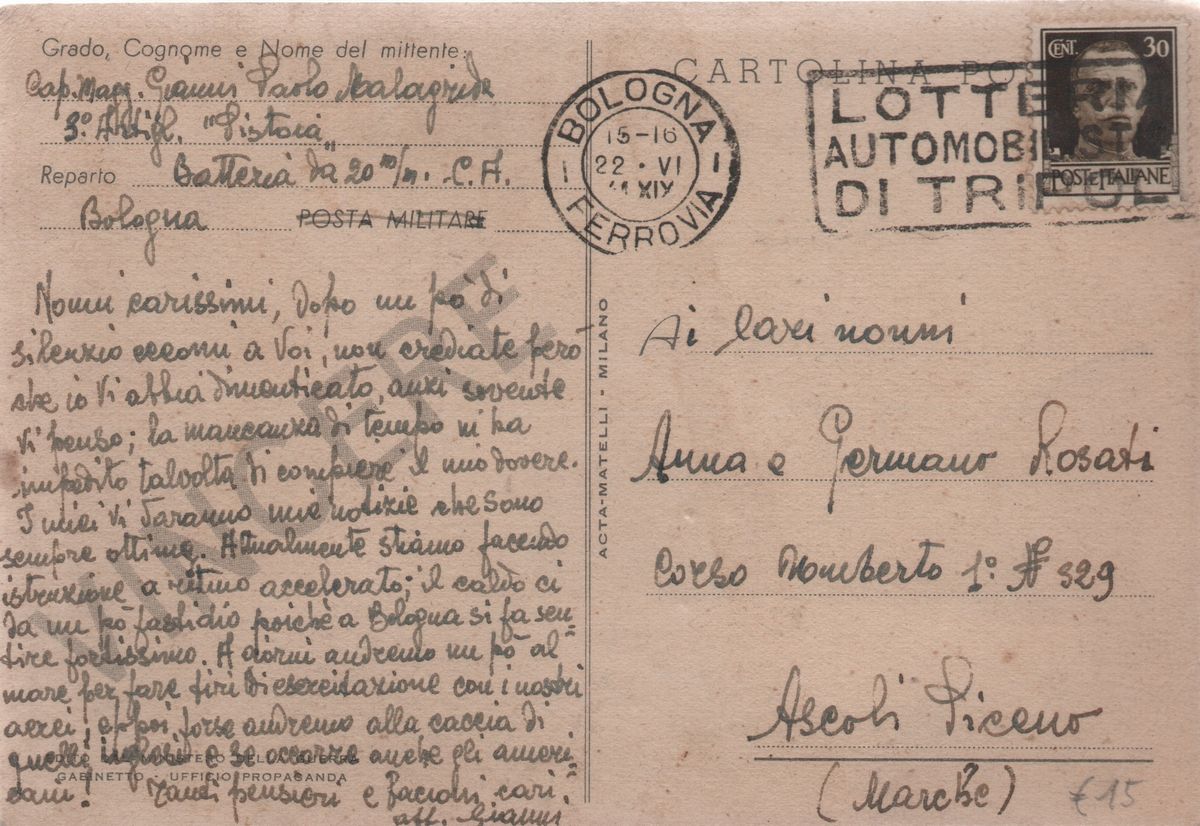 Grado, Cognome e Nome del mittente:
Cap. Magg. Gianni Paolo Malagrida
3° Artigl. "Pistoia"
Reparto Batteria da 20 m/m. C.A.
Bologna POSTA MILITARE
Nonni carissimi, Dopo un pò di
silenzio eccomi a Voi, non crediate però
che io Vi abbia dimenticato, anzi sovente
Vi penso; la mancanza di tempo mi ha
impedito talvolta di compiere il mio dovere.
I miei Vi daranno mie notizie che sono
sempre ottime. Attualmente stiamo facendo
istruzione a ritmo accelerato; il caldo ci
da un pò fastidio poichè a Bologna si fa sen=
tire fortissimo. A giorni andremo un pò al
mare per fare tiri di esercitazione con i nostri
aerei, e poi, forse andremo alla caccia di
quelli inglesi e se occorre anche gli ameri
cani! Tanti pensieri e bacioni cari.
aff. Gianni
VINCERE
MINISTERO DELLA GUERRA
GABINETTO - UFFICIO PROPAGANDA
ACTA-MATELLI - MILANO
BOLOGNA
15-16
22 · VI
41 XIX
FERROVIA
CARTOLINA PO
LOTTE
AUTOMOBI
DI TRIPOL
CENT. 30
POSTE ITALIANE
Ai Cari nonni
Anna e Germano Rosati
Corso Umberto 1° N 329
Ascoli Piceno
(Marche)
€ 15